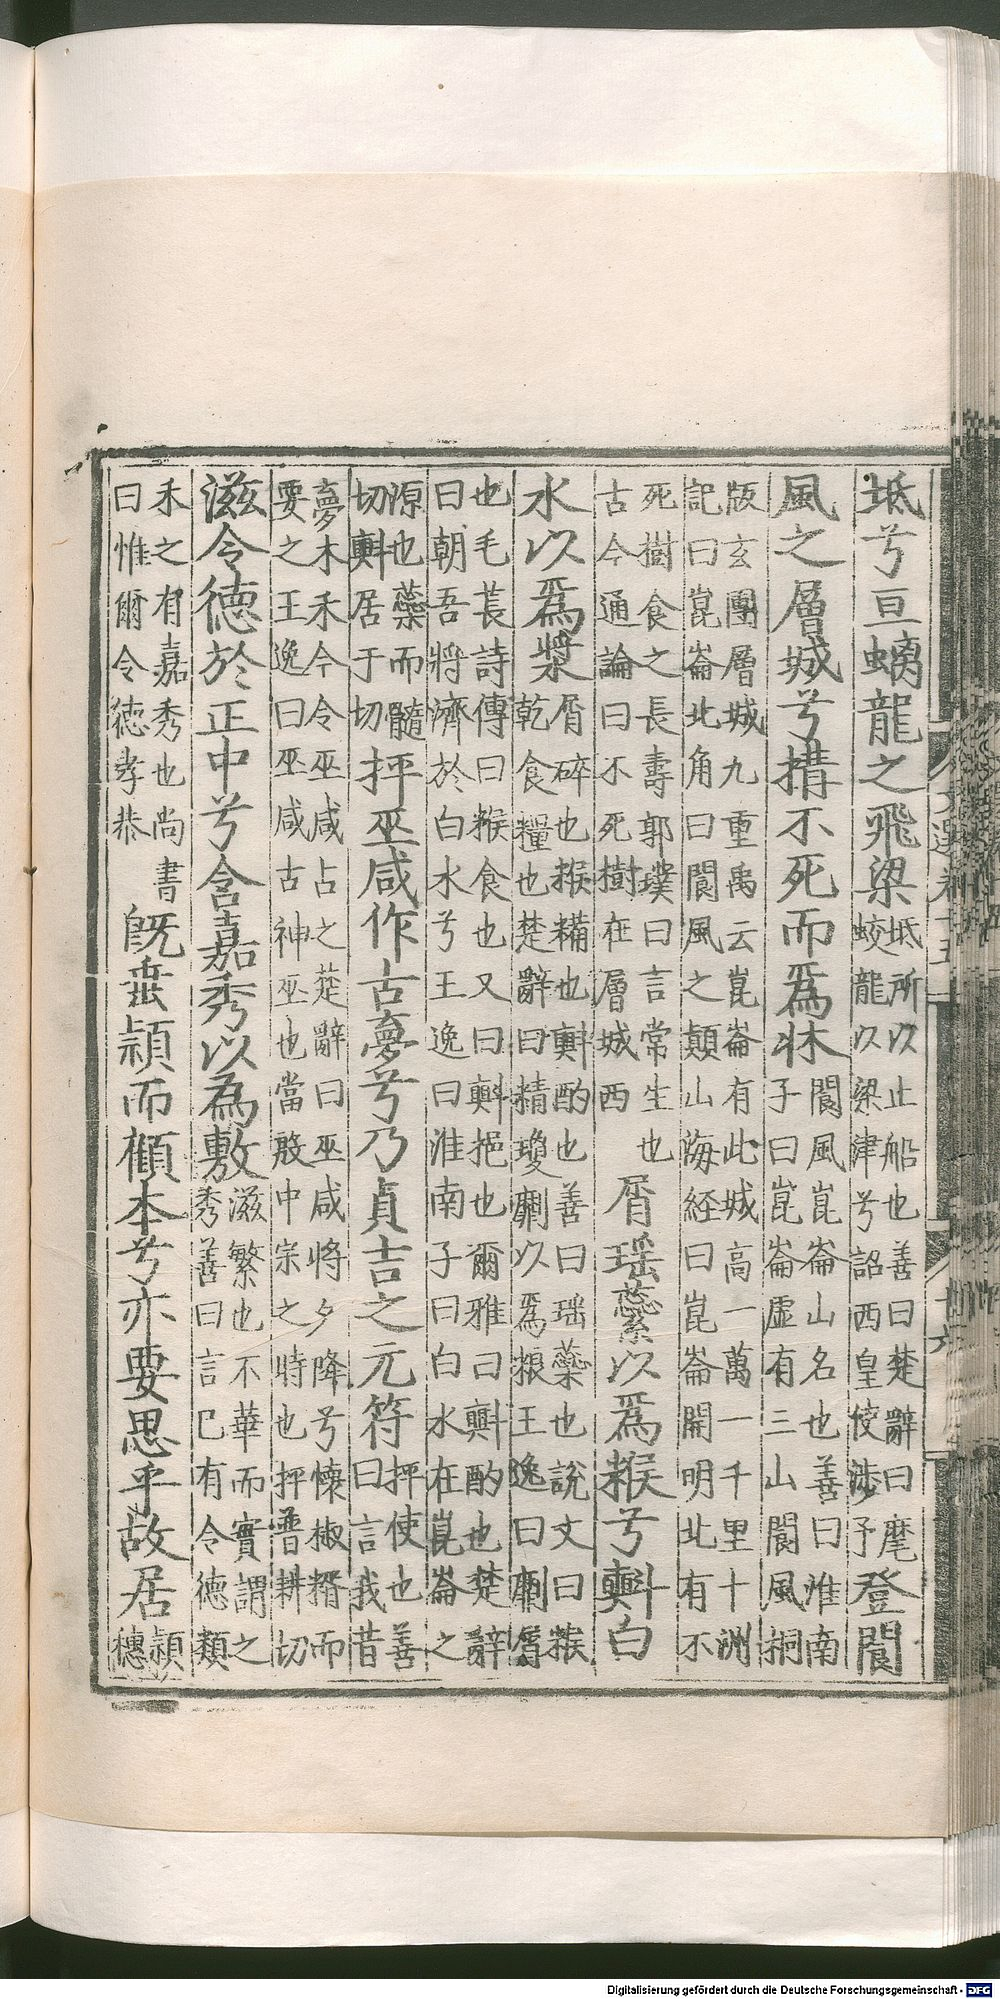 坻兮亘螭龍之飛梁坻所以止船也善曰楚辭曰麾
蛟龍以梁津兮詔西皇使涉予登閬
風之層城兮搆不死而為牀閬風崑崙山名也善曰淮南
子曰崑崙虛有三山閬風桐
版玄圃層城九重禹云崑崙有此城高一萬一千里十洲
記曰崑崙北角曰閬風之顛山海經曰崑崙開明北有不
死樹食之長壽郭璞曰言常生也
古今通論曰不死樹在層城西屑瑶蘂以為糇兮㪺白
水以為漿屑碎也糇糒也㪺酌也善曰瑶蘂也說文曰糇
乾食糧也楚辭曰精瓊靡以為粻王逸曰靡屑
也毛萇詩傳曰糇食也又曰㪺挹也爾雅曰㪺酌也楚辭
曰朝吾將濟於白水兮王逸曰淮南子曰白水在崑崙之
源也蘂而髓
切㪺居于切抨巫咸作古夢兮乃貞吉之元符抨使也善
曰言我昔
夢木禾今令巫咸占之楚辭曰巫咸將夕降兮懷椒糈而
要之王逸曰巫咸古神巫也當殷中宗之時也抨普耕切
滋令德於正中兮含嘉秀以為敷滋繁也不華而實謂之
秀善曰言已有令德類
禾之有嘉秀也尚書
曰惟爾令德孝恭既垂潁而顧本兮亦要思乎故居潁
穗
文選卷十五
十六
Digitalisierung gefördert durch die Deutsche Forschungsgemeinschaft - DFG